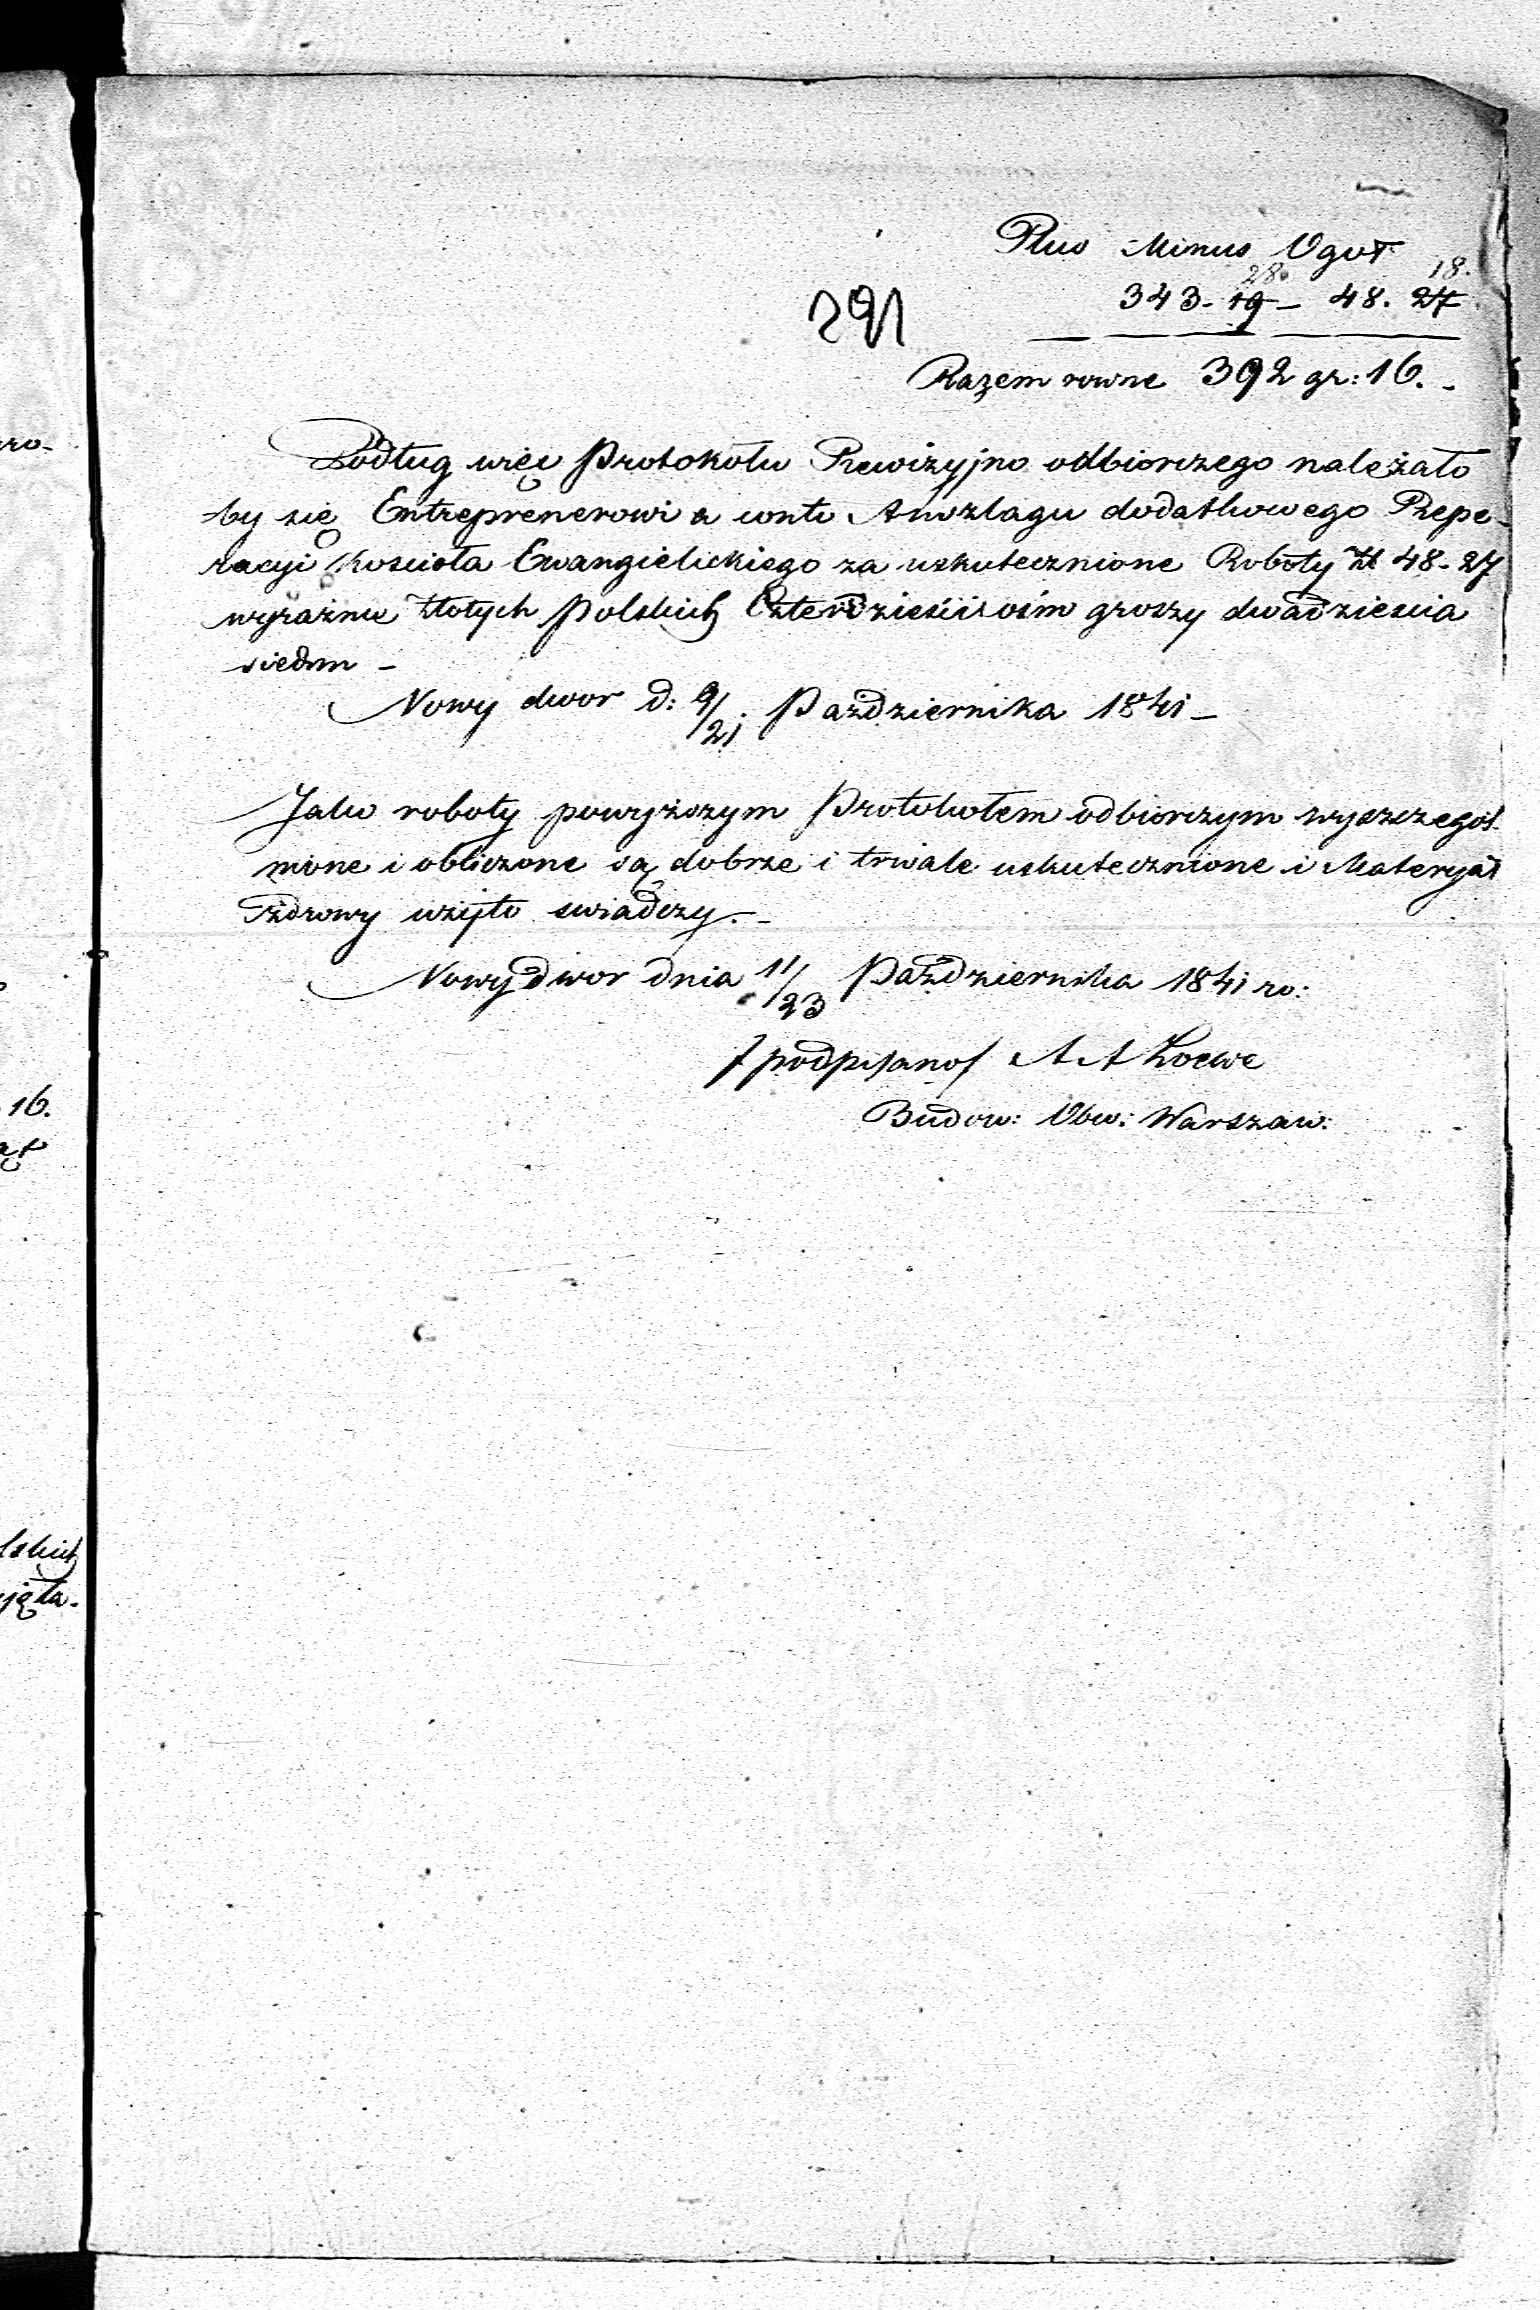 Plus Minus Ogoł
28. 18.
343. 19 — 48. 27
291
Razem rowne 392 gr: 16. -
Podług więc Protokołu Rewizyjno odbiorczego należało
by się Entreprenerowi a conto Anszlagu dodatkowego Repe-
racyi Kościoła Ewangielickiego za uskutecznione Roboty Zł 48. 27
wyraźnie Złotych Polskich Czterdzieści ośm groszy dwadzieścia
siedm —
Nowy dwor d: 9/21. Października 1841 —
Jako roboty powyższym Protokołem odbiorczym wyszczegól-
nione i obliczone są dobrze i trwale uskutecznione i Materyał
Zdrowy użyto swiadczy. -
Nowy dwor dnia 11/23 Października 1841 ro:
/podpisano/ A A Loewe
Budow: Obw: Warszaw:
ro-
16.
lskich
jęta.